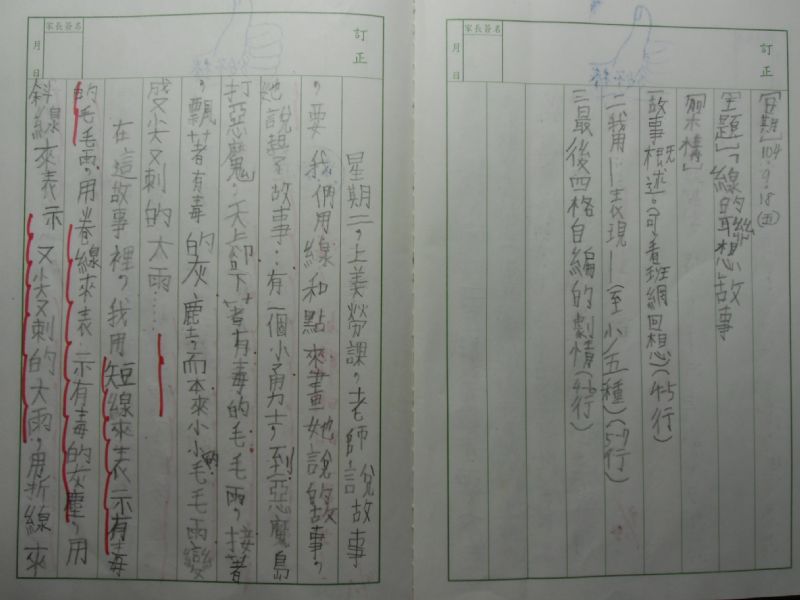 訂正
家長簽名
月 日
[日期]104.9.18(五)
[主題]「線的聯想故事
[架構]
一故事概述。(可看班網回想)(4-5行)
二我用…表現…(至少五種)(5-9行)
三最後四格自編的劇情(4-6行)
訂正
家長簽名
月 日
星期二,上美勞課,老師說故事
,要我們用線和點來畫她說的故事,
她說起了故事:有一個小勇士,到惡魔島
打惡魔,天上卻下著有毒的毛毛雨,接著
,飄著有毒的灰塵,而本來小小的毛毛雨變
成又尖又刺的大雨……
在這故事裡,我用短線來表示有毒
的毛毛雨,用卷線來表示有毒的灰塵,用
斜線來表示又尖又刺的大雨,用折線來